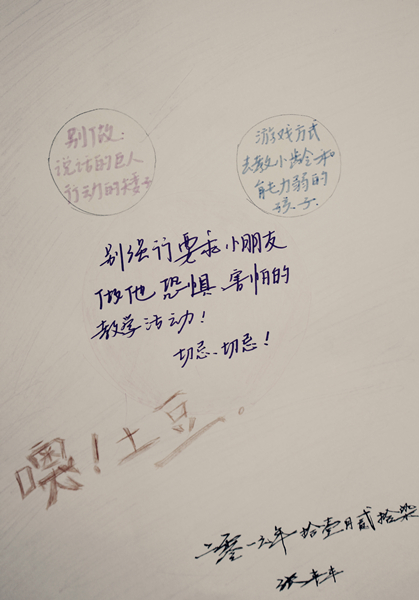 别做:
说话的巨人
行动的矮子
游戏方式
去教小龄和
能力弱的
孩子.
别强行要求小朋友
做他恐惧、害怕的
教学活动!
切忌、切忌!
噢!土豆.
二零一六年拾壹月贰拾柒